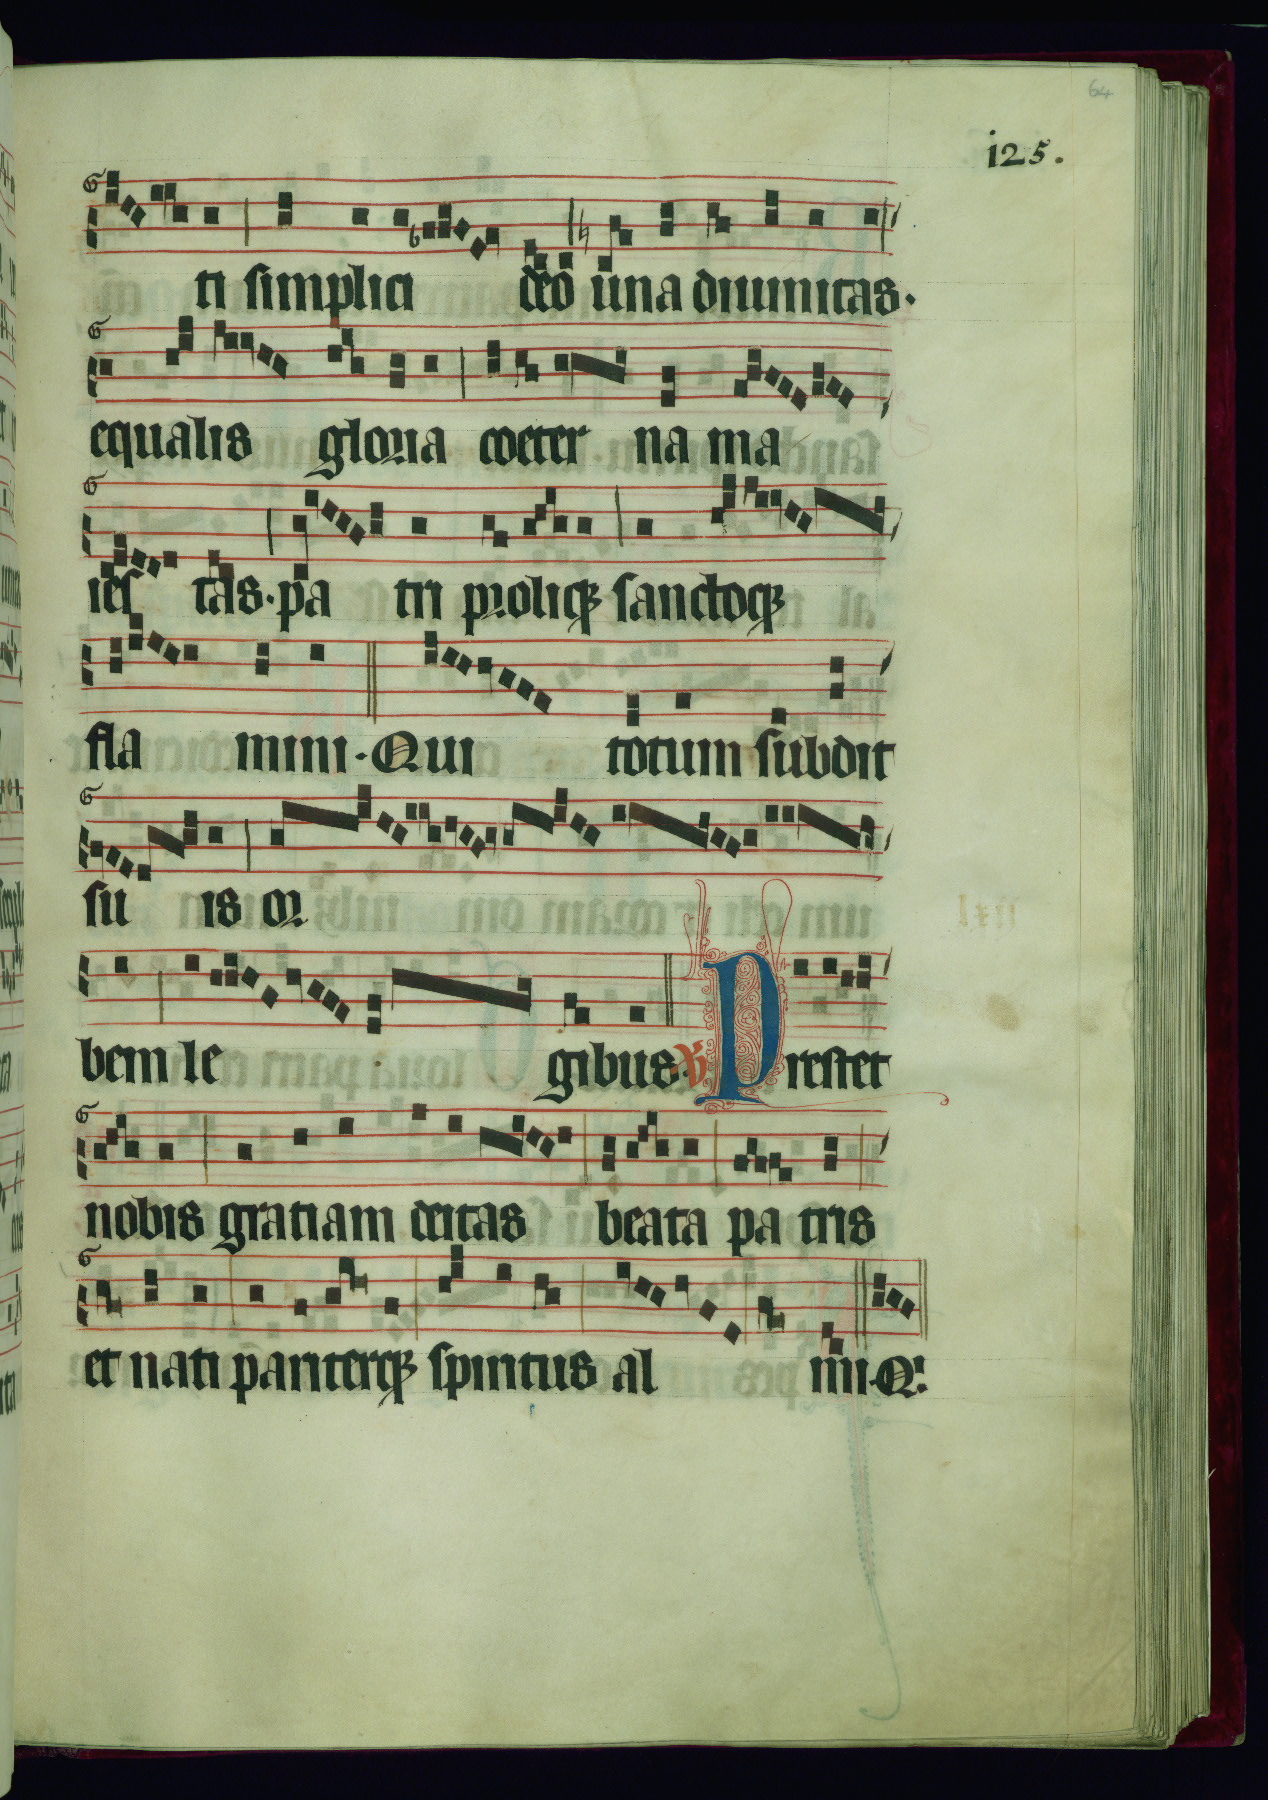 64
i25.
ti simplici deo una diuinitas.
equalis gloria coeter na ma
ies tas. pa tri proliqꝫ sanctoqꝫ
fla mini. Qui totum subdit
su is or
bem le gibus. ℣ Prestet
nobis gratiam deitas beata pa tris
et nati pariterqꝫ spiritus al mi. Q